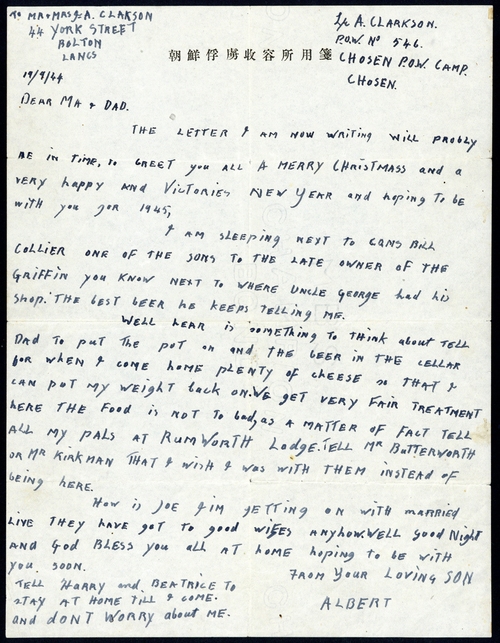 To MR & MRS J. A. CLARKSON
44 YORK STREET
BOLTON
LANCS
L/c A. CLARKSON.
P.O.W. No 546.
CHOSEN P.O.W. CAMP.
CHOSEN.
朝鮮俘虜収容所用箋
19/9/44
DEAR MA & DAD.
THE LETTER I AM NOW WRITING WILL PROBLY
BE IN TIME, TO GREET you ALL A MERRY CHRISTMASS and a
very happy AND VICTORIES NEW YEAR and hoping To be
with you for 1945,
I AM SLEEPING NEXT TO GQNS BILL
COLLIER ONE OF THE SONS TO THE LATE OWNER OF THE
GRIFFIN you KNOW NEXT TO WHERE UNCLE GEORGE had his
shop. THE BEST BEER HE KEEPS TELLING ME.
WELL HEAR is something to THINK about TELL
DAD TO PUT THE POT on AND THE BEER IN THE CELLAR
FOR WHEN I COME HOME PLENTY OF CHEESE so THAT I
CAN PUT MY WEIGHT back on. WE GET VERY FAIR TREATMENT
here THE Food is NOT To bad, as A MATTER OF FACT TELL
ALL MY PALS AT RUMWORTH Lodge. TELL MR BUTTERWORTH
OR MR KIRKMAN THAT I WISH I WAS WITH THEM INSTEAD OF
being HERE.
HOW is JOE & JIM GETTING ON WITH MARRIED
LIVE THEY HAVE GOT TO good WIFES ANYHOW. WELL Good Night
AND God BLESS you all AT home hoping to be WITH
you. soon.
FROM YOUR LOVING SON
ALBERT
TELL HARRY and BEATRICE TO
STAY AT HOME TILL I COME.
and DONT WORRY about ME.